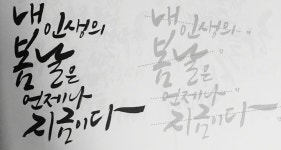 내 인생의
봄날은
언제나
지금이다
내 인생의
봄날은
언제나
지금이다